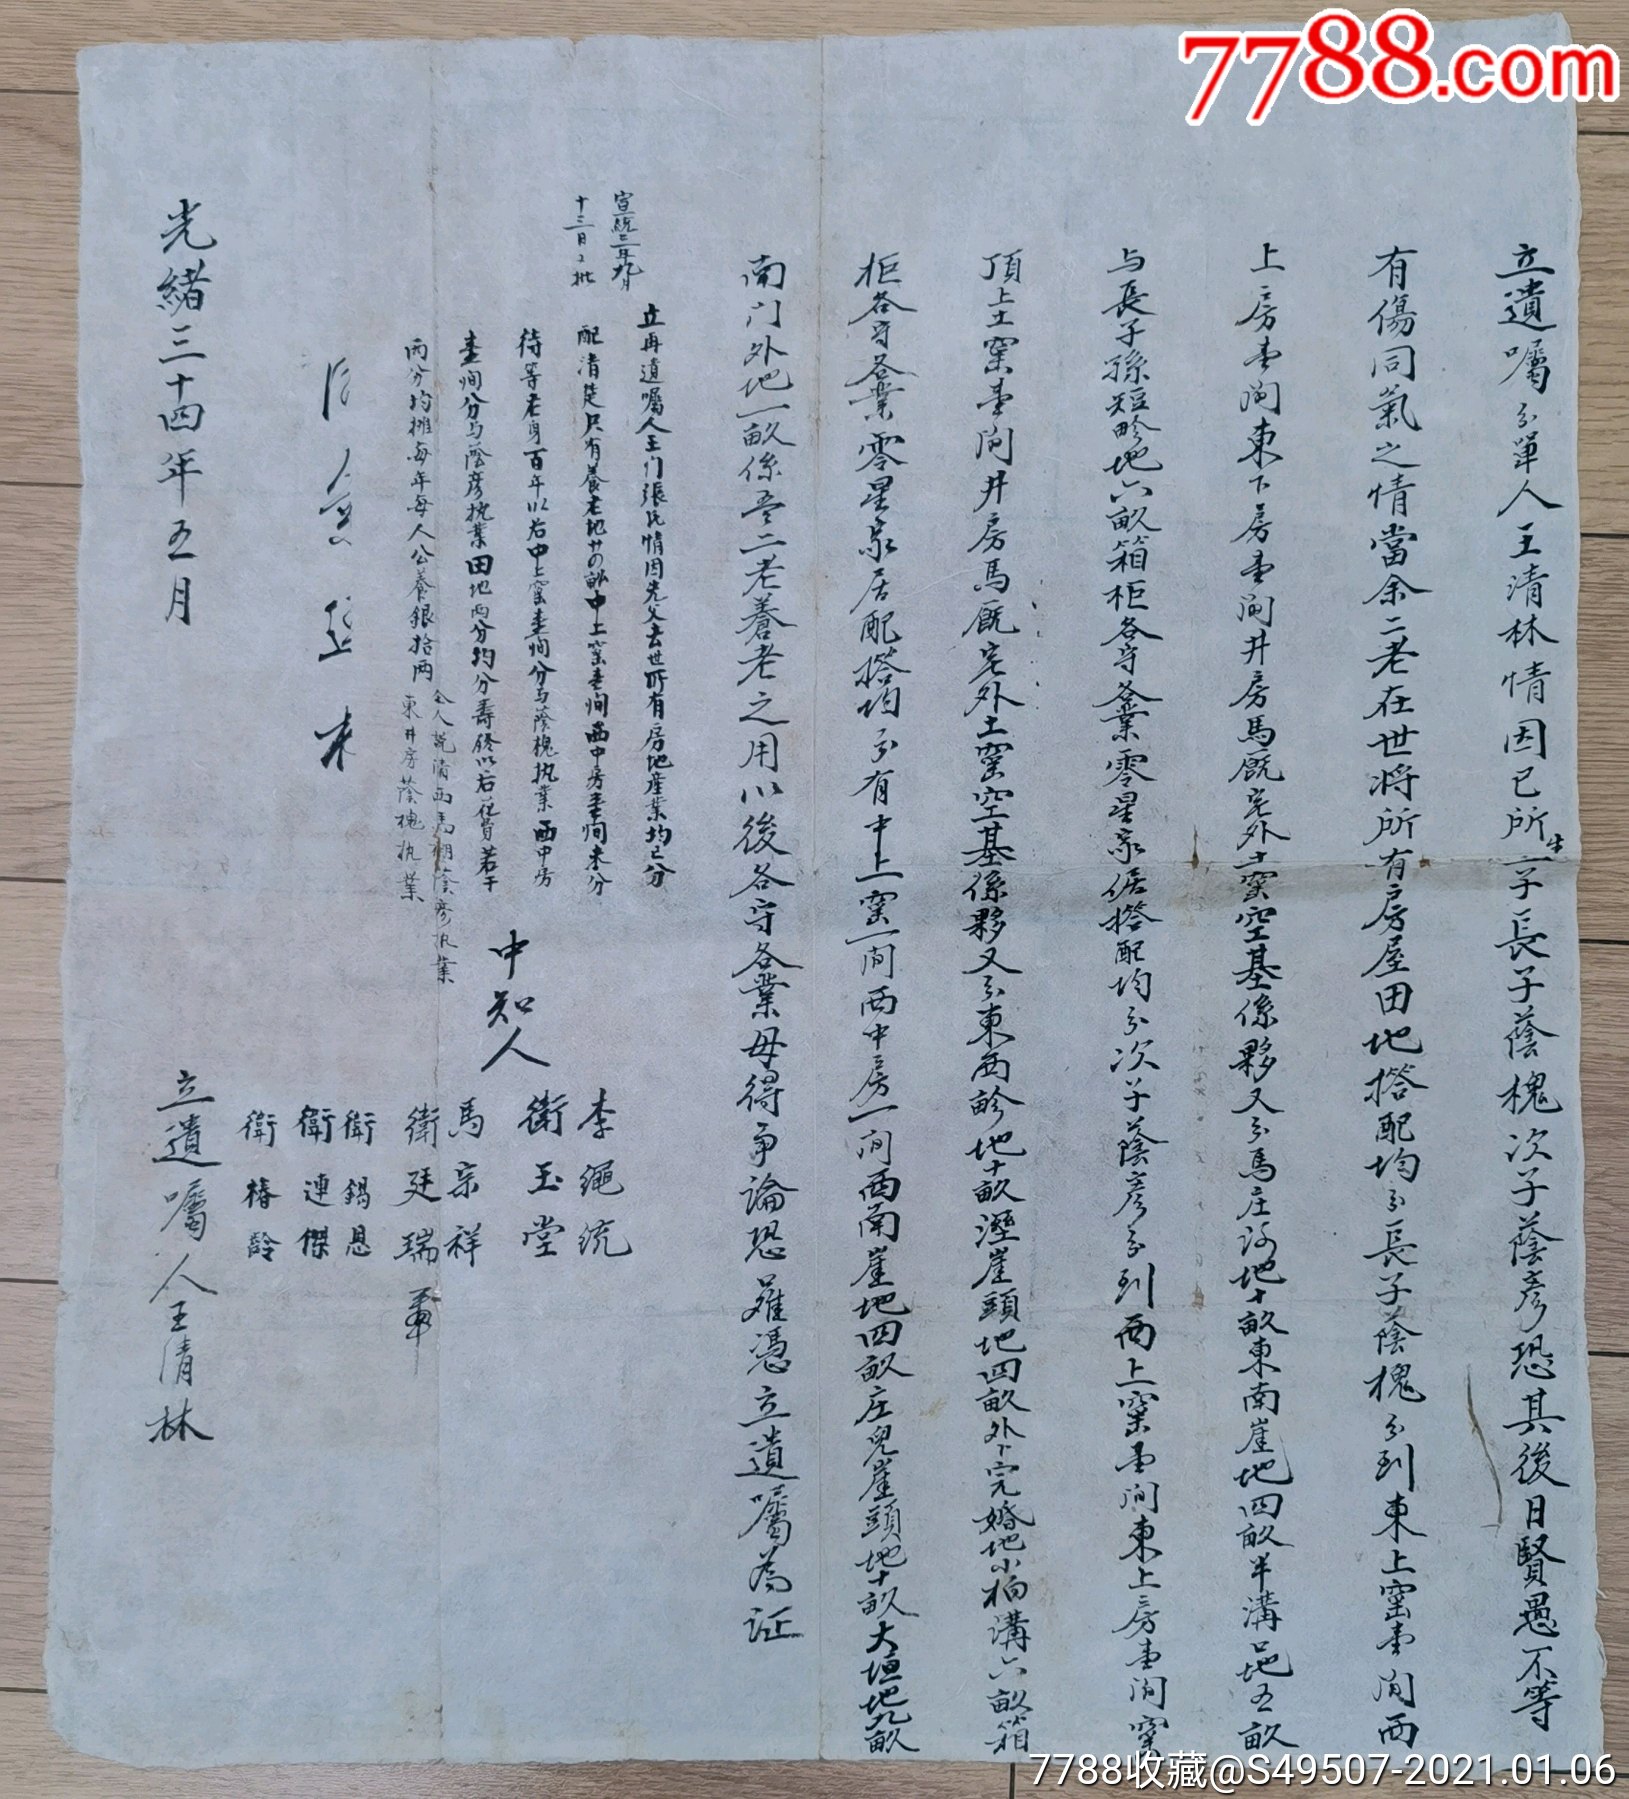 7788.com
立遺囑分單人王清林情因已所生二子長子蔭槐次子蔭彥恐其後日賢愚不等
有傷同氣之情當余二老在世將所有房屋田地搭配均分長子蔭槐分到東上窰壹間西
上房壹間東下房壹间井房馬厩宅外土窰空基係夥又分馬庄河地十畝東南崖地四畝半溝凹地五畝
与長子孫短畛地六畝箱柜各守各業零星家倨搭配均分次子蔭彥分到西上窰壹间東上房壹间窰
頂上土窰壹间井房馬厩宅外土窰空基係夥又分東西畛地十畝溼崖頭地四畝外下完婚地小柏溝六畝箱
柜各守各業零星家居配搭均分有中上窰一间西中房一间西南崖地四畝庄兒崖頭地十畝大垣地九畝
南门外地一畝係吾二老養老之用以後各守各業毋得爭論恐难憑立遺囑為証
宣統二年九月
十三日批
立再遺囑人王门張氏情因先父去世所有房地產業均已分
配清楚只有養老地廿四畝中上窑壹间西中房壹间未分
待等老身百年以后中上窑壹间分与蔭槐执業西中房
壹间分与蔭彥执業田地两分均分壽終以后花費若干
两分均摊每年每人公養銀拾两
仝人説清西馬棚蔭彥执業
東井房蔭槐执業
中知人
李繩統
衛玉堂
馬宗祥
衛廷瑞
衛錫恩
衛連傑
衛椿齡
光緒三十四年五月
立遺囑人王清林
7788收藏@S49507-2021.01.06